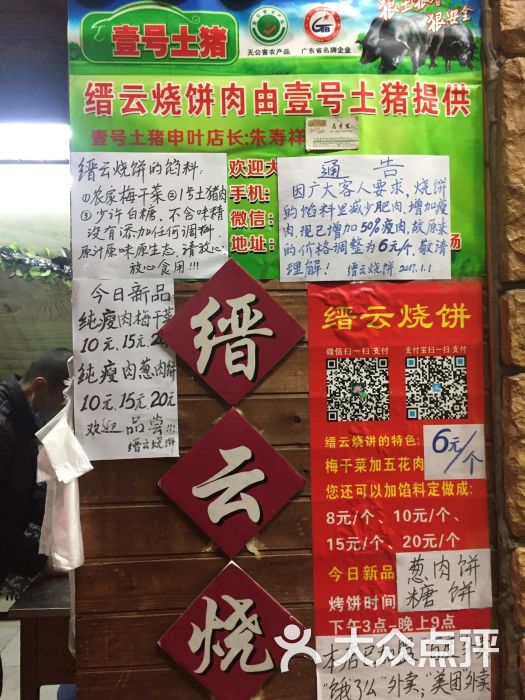 壹号土猪
无公害农产品
GTB
广东省名牌企业
狠土狠香
狠安全
缙云烧饼肉由壹号土猪提供
壹号土猪申叶店长:朱寿祥
欢迎大
手机:
微信:
地址:
场
缙云烧饼的馅料:
①农家梅干菜②1号土猪肉
③少许白糖,不含味精
没有添加任何调料,
原汁原味原生态,请放心
放心食用!!!
通告
因广大客人要求,烧饼
的馅料里减少肥肉,增加瘦
肉,现已增加50%瘦肉,故原来
的价格调整为6元/个,敬请
理解! 缙云烧饼 2017.1.1
今日新品
纯瘦肉梅干菜
10元.15元.20
纯瘦肉葱肉饼
10元.15元20元
欢迎品尝!!!
缙云烧饼
缙
云
烧
缙云烧饼
微信扫一扫 支付
支付宝扫一扫 支付
缙云烧饼的特色:
梅干菜加五花肉
6元/个
您还可以加馅料定做成:
8元/个、10元/个、
15元/个、20元/个
今日新品
葱肉饼
糖饼
烤饼时间
下午3点-晚上9点
本店已
"饿了么"外卖,"美团外卖
大众点评